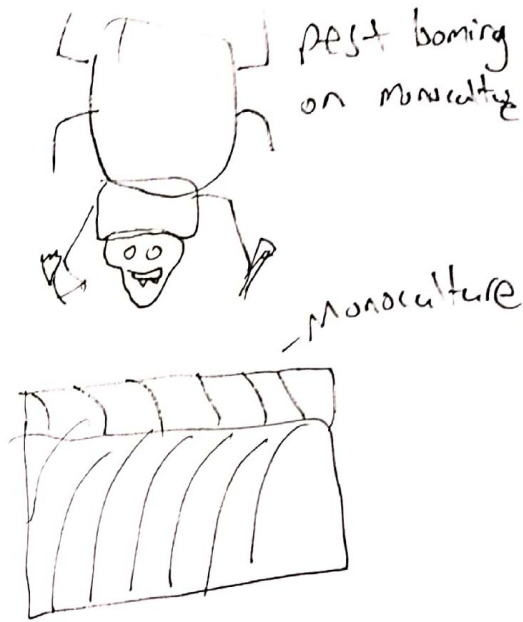 Pest boming
on monocultuz
Monoculture